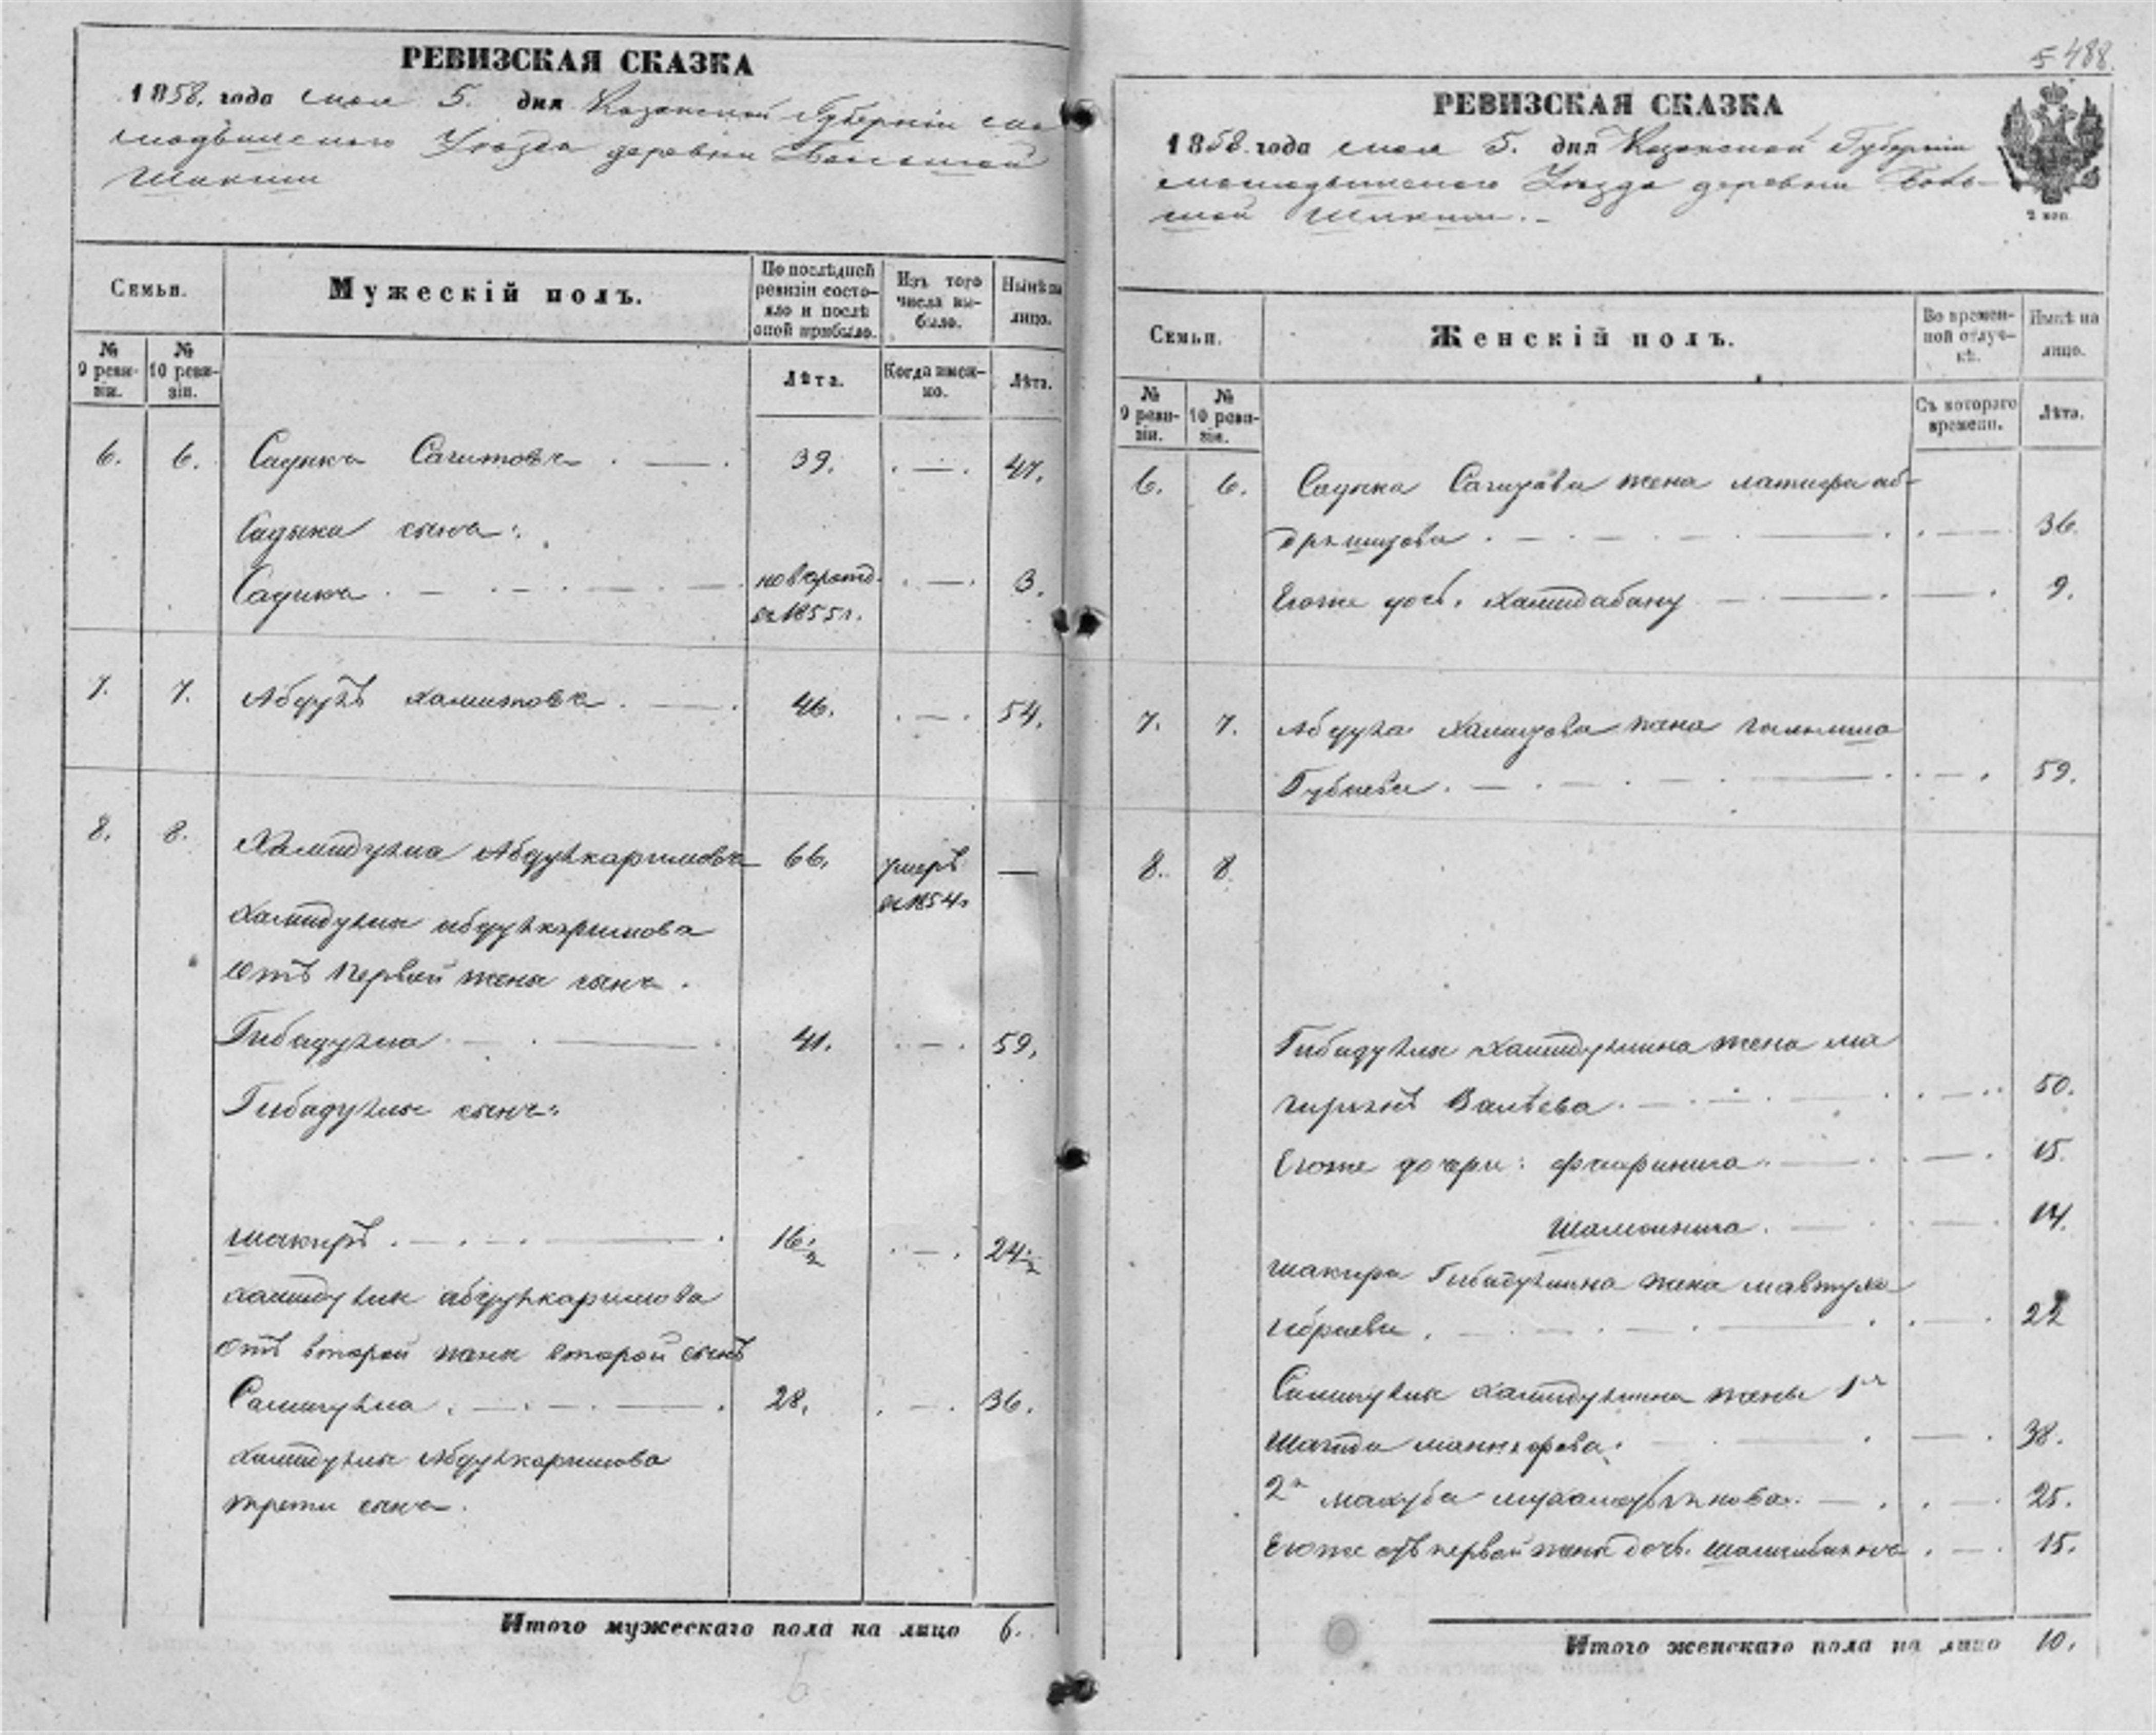 РЕВИЗСКАЯ СКАЗКА
1858. года мая 5. дня Казанской Губернiи ма
мадышскаго Уезда деревни Большой
Шикши
Семьи.
Мужескiй полъ.
По послѣдней ревизiи состояло и послѣ оной прибыло.
Изъ того числа выбыло.
Нынѣ на лицо.
№ 9 ревизiи.
№ 10 ревизiи.
Лѣта.
Когда именно.
Лѣта.
6. 6. Садыкъ Сагитовъ . — . 39. . — . 47.
Садыка сынъ:
Садыкъ новорожд. . — . 3.
въ 1855 г.
7. 7. Абдулъ Хамитовъ . — . 46. . — . 54.
8. 8. Хамидулла Абдулкаримовъ 66. умеръ —
въ 1854 г
Хамидуллы Абдулкаримова
отъ первой жены сынъ.
Гибадулла 41. . — . 59.
Гибадуллы сынъ:
Шакиръ 16.½ . — . 24.½
Хамидуллы Абдулкаримова
отъ второй жены второй сынъ
Самигулла 28. . — . 36.
Хамидуллы Абдулкаримова
трети сынъ.
Итого мужескаго пола на лицо 6.
6
5 488.
РЕВИЗСКАЯ СКАЗКА
1858. года мая 5. дня Казанской Губернiи
мамадышскаго Уезда деревни Боль-
шой Шикши. -
2 коп.
Семьи.
Женскiй полъ.
Во временной отлучкѣ.
Нынѣ на лицо.
№ 9 ревизiи.
№ 10 ревизiи.
Съ котораго времени.
Лѣта.
6. 6. Садыка Сагитова жена Латифа аб-
дрешитова 36.
Егоже дочь. Хамидабану 9.
7. 7. Абдула Хамитова жена
Губаева 59.
8. 8.
Гибадуллы Хамидуллина жена
Валѣева 50.
Егоже дочери: 15.
14.
Шакира Гибадуллина жена Мавтуха
22
Самигуллы Хамидуллина жены 1я
Шагида 38.
2я Махуба 25.
Егоже отъ первой жены дочь. 15.
Итого женскаго пола на лицо 10.